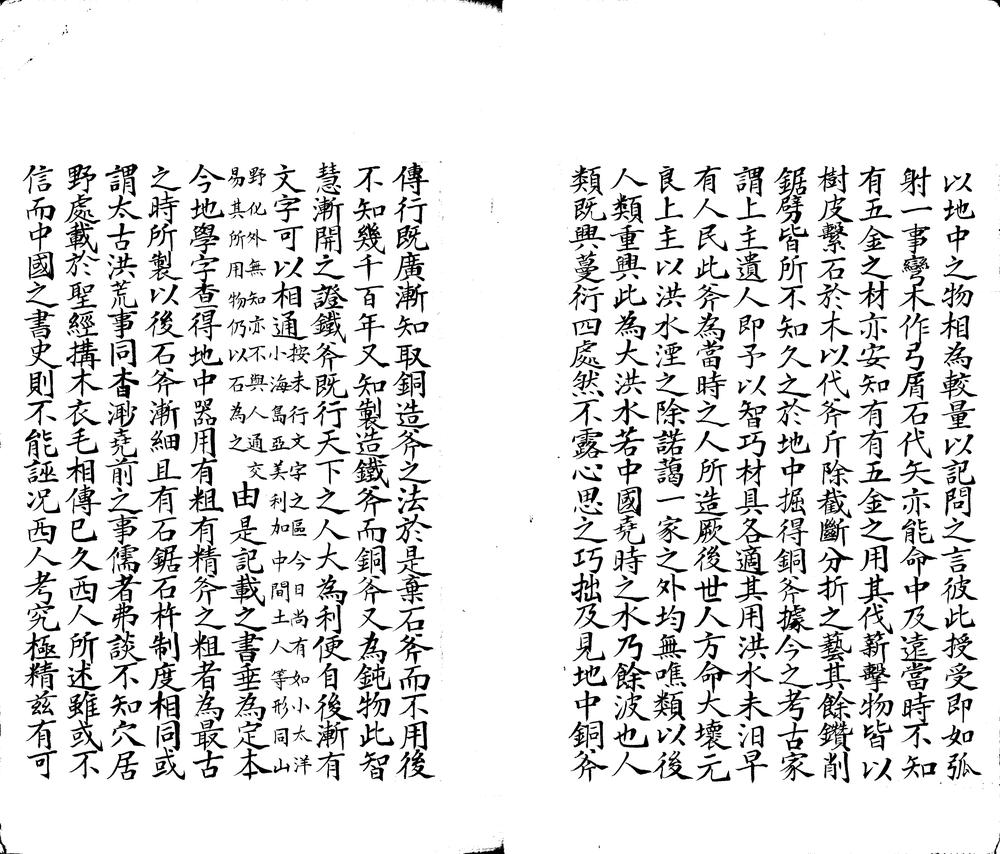 以地中之物相為較量以記問之言彼此授受即如弧
射一事彎木作弓屑石代矢亦能命中及遠當時不知
有五金之材亦安知有有五金之用其伐薪擊物皆以
樹皮繫石於木以代斧斤除截斷分折之藝其餘鑽削
鋸劈皆所不知久之於地中掘得銅斧據今之考古家
謂上主遺人即予以智巧材具各適其用洪水未汨早
有人民此斧為當時之人所造厥後世人方命大壞元
良上主以洪水湮之除諾藹一家之外均無噍類以後
人類重興此為大洪水若中國堯時之水乃餘波也人
類既興蔓衍四處然不露心思之巧拙及見地中銅斧
傳行既廣漸知取銅造斧之法於是棄石斧而不用後
不知幾千百年又知製造鐵斧而銅斧又為鈍物此智
慧漸開之證鐵斧既行天下之人大為利便自後漸有
文字可以相通按未行文字之區今日尚有如小太洋
小海島亞美利加中間土人等形同山
野化外無知亦不與人通交
易其所用物仍以石為之由是記載之書垂為定本
今地學字查得地中器用有粗有精斧之粗者為最古
之時所製以後石斧漸細且有石鋸石杵制度相同或
謂太古洪荒事同杳渺堯前之事儒者弗談不知穴居
野處載於聖經搆木衣毛相傳已久西人所述雖或不
信而中國之書史則不能誣况西人考究極精茲有可